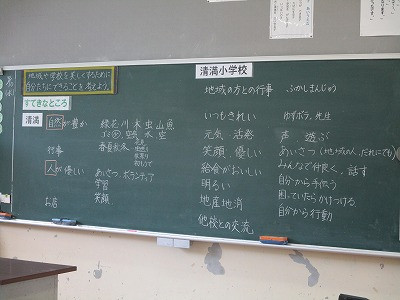 地域や学校を美しくするために
自分たちにできることを考えよう。
すてきなところ
清満
自然が豊か
緑 花 川 木 虫 山 魚
水 空
春夏秋冬
行事
人が優しい
あいさつ、ボランティア
学習
笑顔
お店
清満小学校
地域の方との行事 ふかしまんじゅう
いつもきれい ゆずボラ、先生
元気・活発 声 遊ぶ
笑顔、優しい あいさつ(地域の人、だれにでも)
給食がおいしい みんなで仲良く、話す
明るい 自分から手伝う
地産地消 困っていたらかけつける
他校との交流 自分から行動